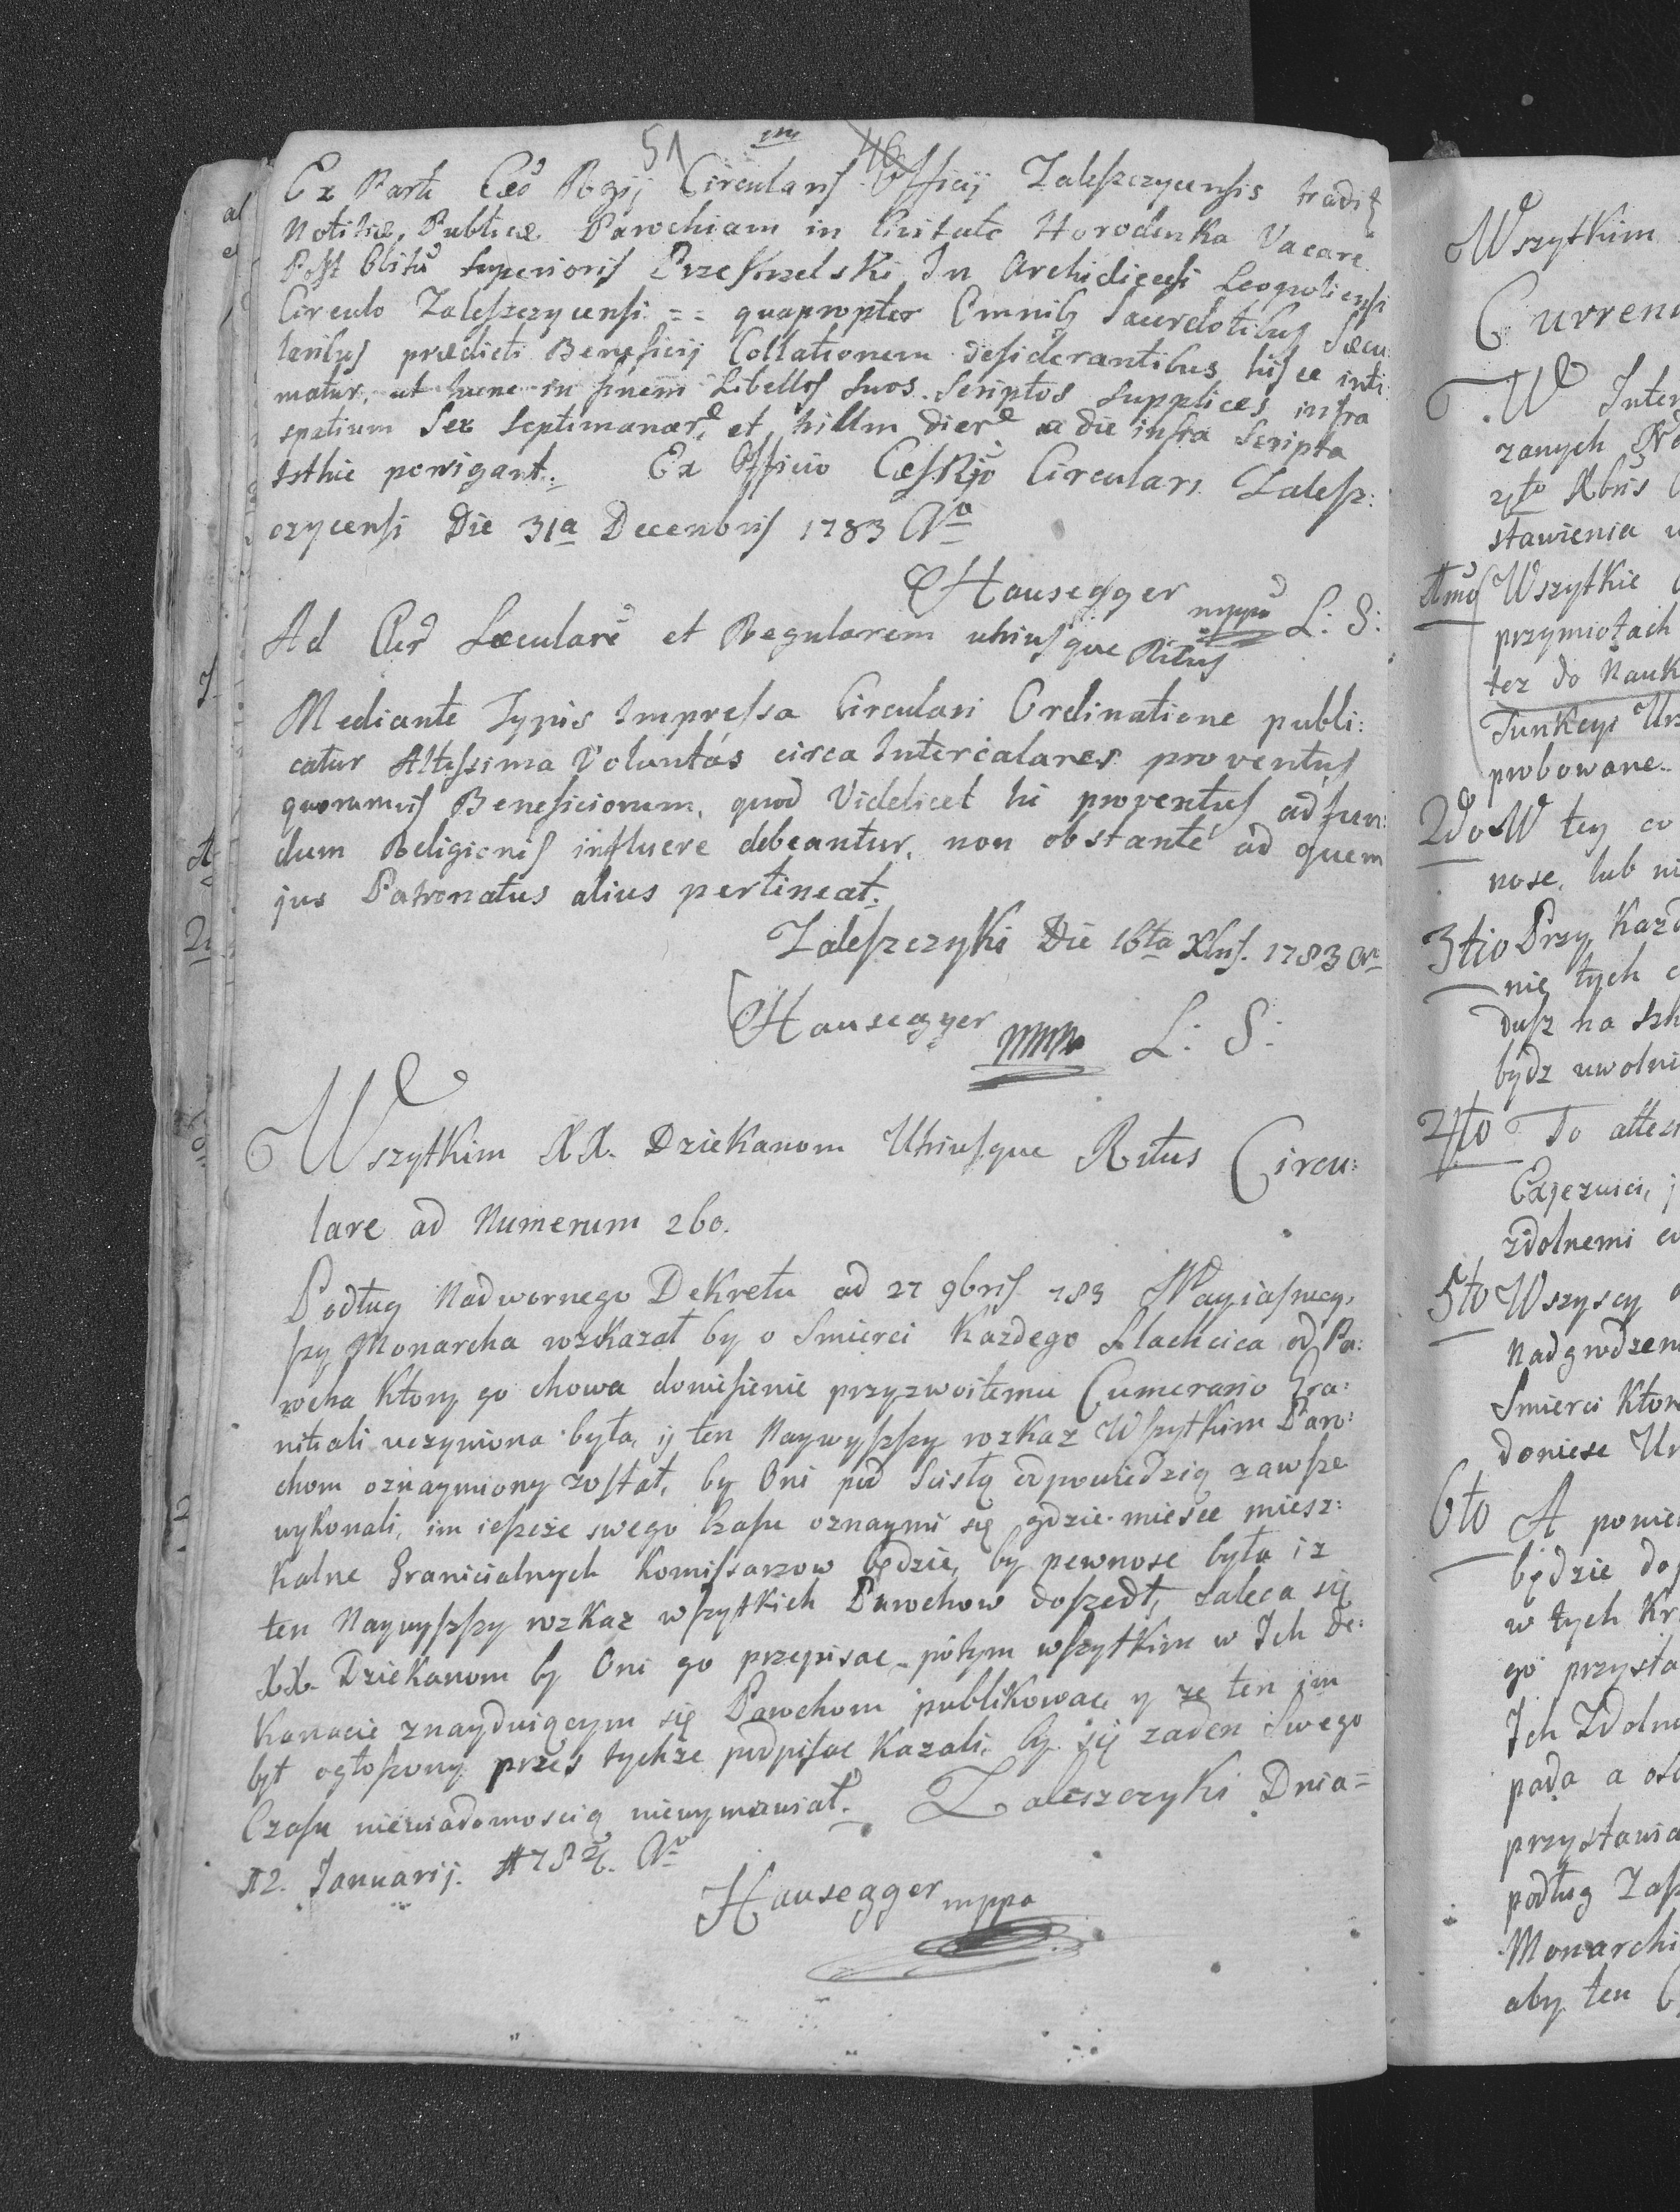 51
Ex Parte Cæs Regij Circularis Officij Zaleszczycensis tradit
Notitiæ, Publicæ Parochiam in Civitate Horodenka Vacare
Post Obitū Superioris In Archidicesi Leopoliensi
Circulo Zaleszczycensi == quapropter Omnib9 Sacerdotibus Sæcu
laribus prædicti Beneficij Collationem desiderantibus hisce inti
matur, ut hunc in finem Libellos Suos Scriptos Supplices infra
spatium Sex Septimanar, et dier a die infra Scripta
Isthic porrigant. Ex Officio Cæs Rgio Circulari Zalesz:
czycensi Die 31a Decenbris 1783 Ao
Hausegger mppa L: S:
Ad Cler Sæcularē et Regularem utriusque Ritus
Mediante Typis Impressa Circulari Ordinatione publi:
catur Altissima Voluntas circa Intercalares proventus
quorumvis Beneficiorum, quod Videlicet hi proventus ad fun:
dum Religionis influere debeantur, non obstante ad quem
jus Patronatus alius pertineat.
Zaleszczyki Die 16ta Xbris. 1783 An
Hausegger mppa L: S:
Wszytkim XX. Dziekanom Utriusque Ritus Circu:
lare ad Numerum 260.
Podług Nadwornego Dekretu ad 27 9bris 783 Nayiasniey,
szy Monarcha rozkazał by o Smierci Kazdego Slachcica od Pa:
rocha Ktory go chowa doniesienie przyzwoitemu Cumerario Gra:
nitiali uczyniona była, ij ten Naywyszszy rozkaz Wszytkim Paro:
chom oznaymiony został, by Oni pod Scisłą odpowiedzią zawsze
wykonali, im ieszcze swego Czasu oznaymi się gdzie miesce miesz:
kalne Granicialnych Komissarzow będzie, by pewnosc była iz
ten Naywyszszy rozkaz wszytkich Parochow doszedł, Zaleca się
XX. Dziekanom by Oni go przepisac potym wszytkim w Ich De:
kanacie znayduiącym się Parochom publikowac y ze ten im
był ogłoszony przes tychze podpisac Kazali, by się zaden Swego
Czasu niewiadomoscią niewymawiał. Zaleszczyki Dnia=
12. Januarij. 1784. Ao
Hausegger mppa
Wszytkim
Curren
W Inter
zanych
4to Xbris
stawienia
1mo Wszytkie
przymiotach
tez do Nauk
Funkcyi Urz
probowane.
2do W tey co
nosc, lub ni
3tio Przy Kazd
nie tych
dusz na
bydz uwolni
4to To attes
zdolnemi
5to Wszyscy
Nadgrodzen
Smierci Ktor
doniesc Ur
6to A poniew
będzie do
w tych Kr
go przysta
Ich Zdolno
pada a oso
przystawia
podług
Monarchi
aby ten